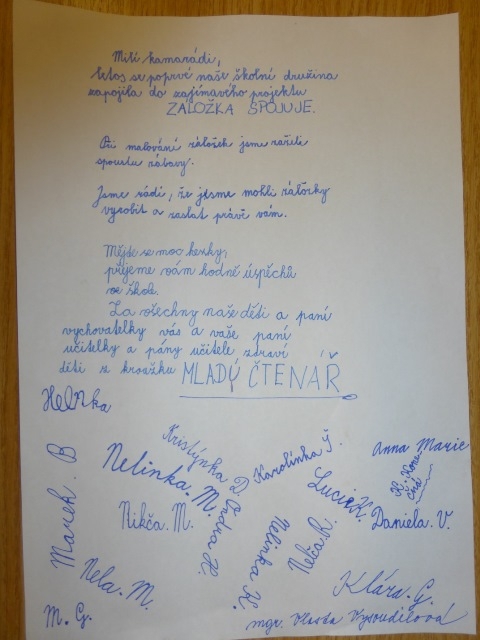 Milí kamarádi,
letos se poprvé naše školní družina
zapojila do zajímavého projektu
ZÁLOŽKA SPOJUJE.
Při malování záložek jsme zažili
spoustu zábavy.
Jsme rádi, že jsme mohli záložky
vyrobit a zaslat právě vám.
Mějte se moc hezky,
přejeme vám hodně úspěchů
ve škole.
Za všechny naše děti a paní
vychovatelky vás a vaše paní
učitelky a pány učitele zdraví
děti z kroužku MLADÝ ČTENÁŘ
Helenka
Kristýnka
Karolínka Š.
Anna Marie
Marek. B
Nelinka. M.
Lucie K.
Rikča. M.
Indra H.
Nelinka H.
Nelča R.
Daniela. V.
Nela. M.
Klára. G.
M. G.
mgr. Vlasta Vysoudilová